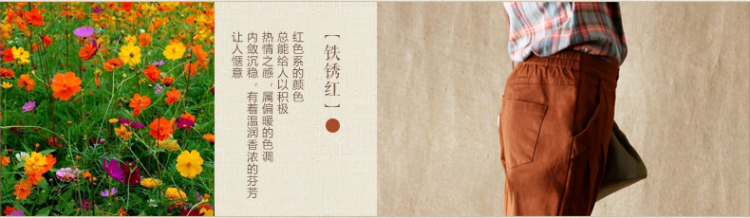 【铁锈红】
红色系的颜色
总能给人以积极
热情之感，属偏暖的色调
内敛沉稳，有着温润香浓的芬芳
让人惬意